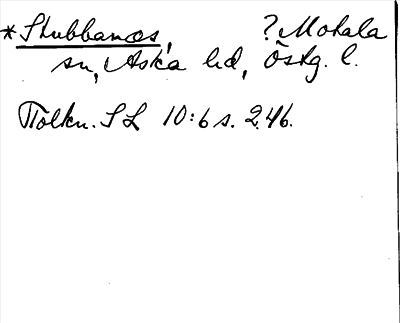 *Stubbanæs, ? Motala
sn, Aska hd, Östg. l.
Tolkn. SL 10:6 s. 246.